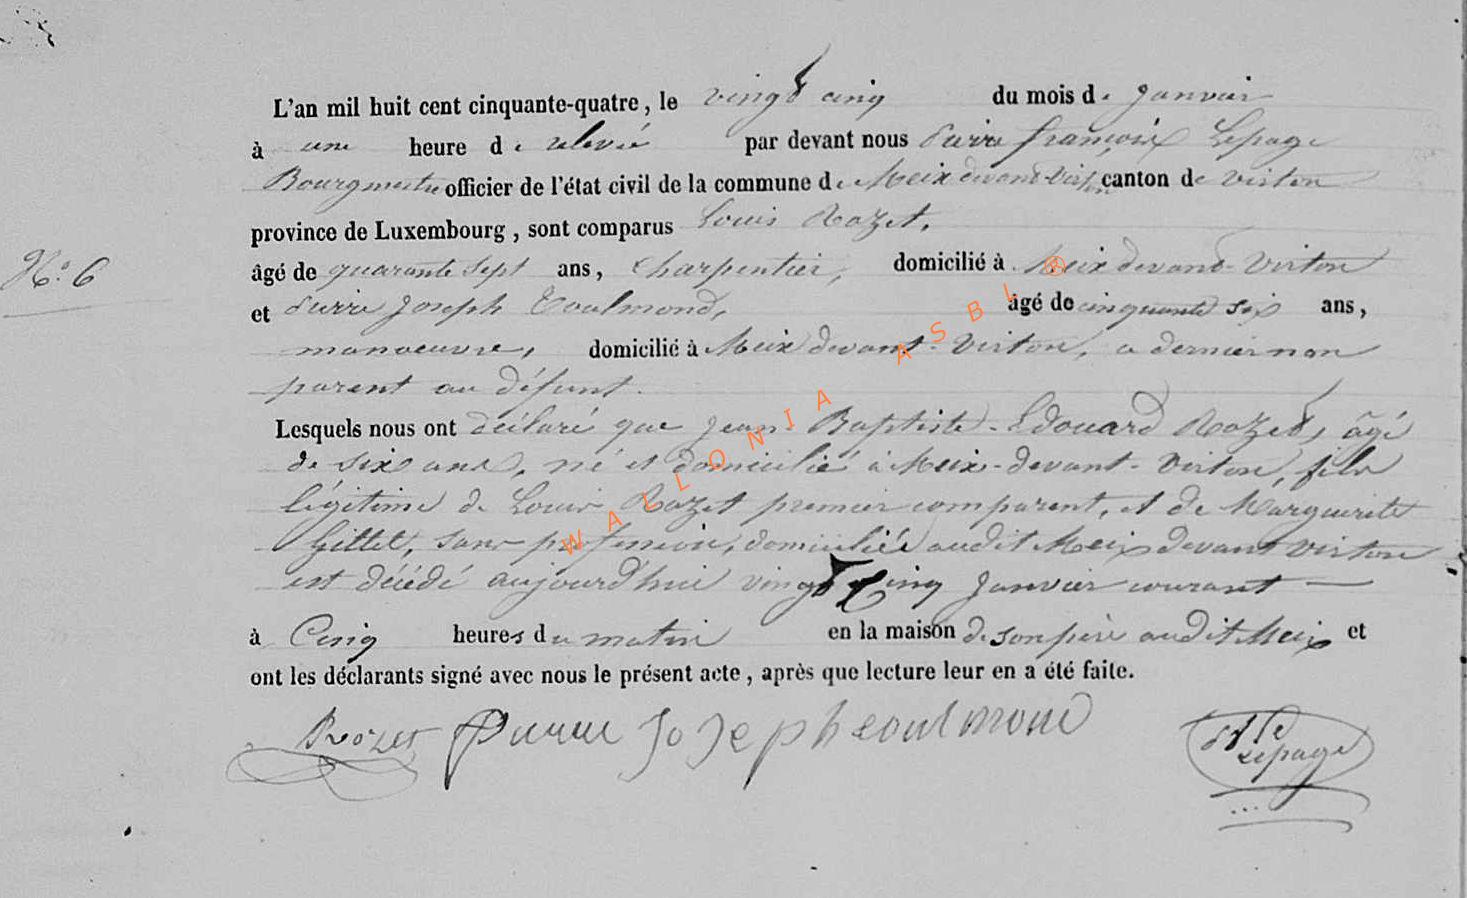 L'an mil huit cent cinquante-quatre, le vingt cinq du mois de Janvier
à une heure de relevée par devant nous Pierre françois Lepage
Bourgmestre officier de l'état civil de la commune de Meix devant-Virton canton de Virton
province de Luxembourg, sont comparus Louis Rozet,
N.° 6
âgé de quarante sept ans, Charpentier, domicilié à Meix devant-Virton
et Pierre Joseph Toulmond, âgé de cinquante six ans,
manoeuvre, domicilié à Meix devant-Virton, ce dernier non
parent au défunt.
Lesquels nous ont déclaré que Jean-Baptiste-Edouard Rozet, âgé
de six ans, né et domicilié à Meix-devant-Virton, fils
légitime de Louis Rozet premier comparent, et de Marguerite
Gillet, sans profession, domiciliée audit Meix devant Virton
est décédé aujourd'hui vingt Cinq Janvier courant
à Cinq heures du matin en la maison de son père audit Meix et
ont les déclarants signé avec nous le présent acte, après que lecture leur en a été faite.
Rozet Pierre Joseph toulmond Lepage
WALLONIA ASBL ®